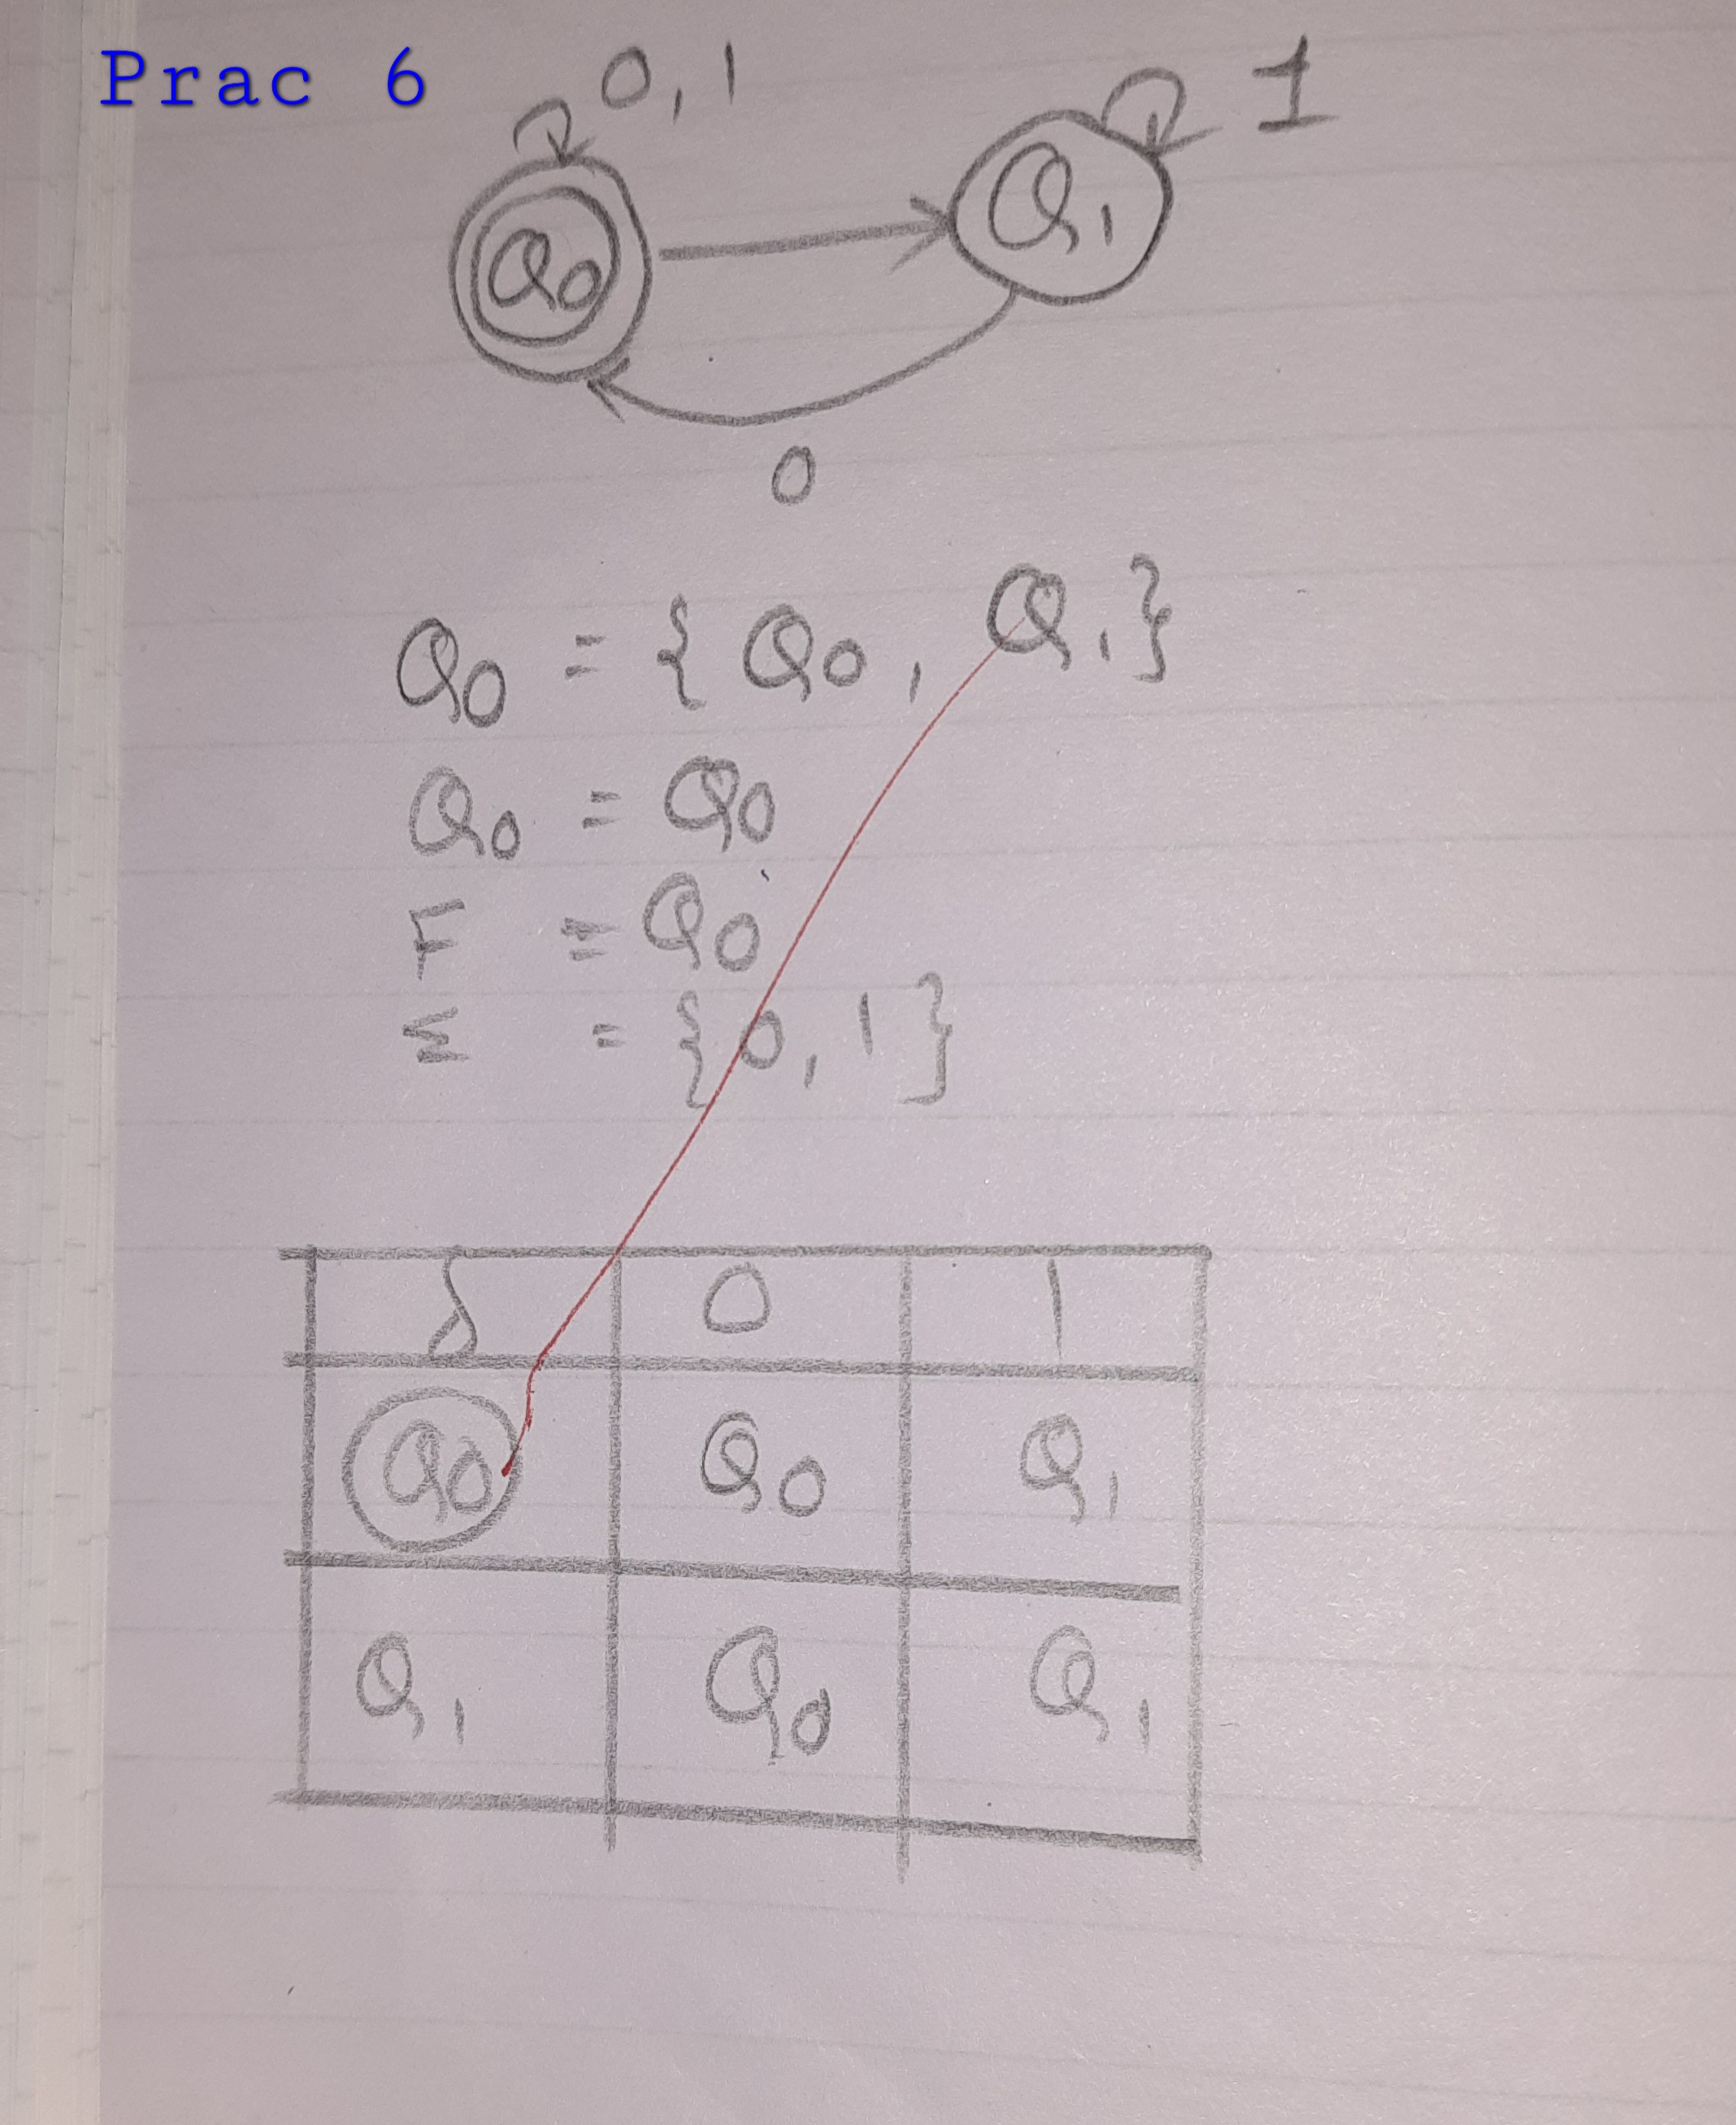 Prac 6
0,1
1
Q0
Q1
0
Q0 = {Q0, Q1}
Q0 = Q0
F = Q0
Σ = {0,1}
δ 0 1
Q0 Q0 Q1
Q1 Q0 Q1